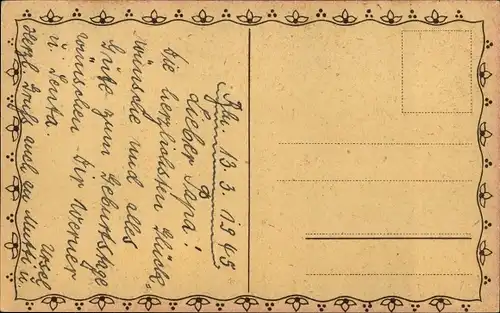 Bln. 13.3.1945
Lieber Papa!
Die herzlichsten Glück-
wünsche und alles
Gute zum Geburtstage
wünschen Dir Werner
u. Senta.
Herzl. Gruß auch an Mutti u.
Ursel